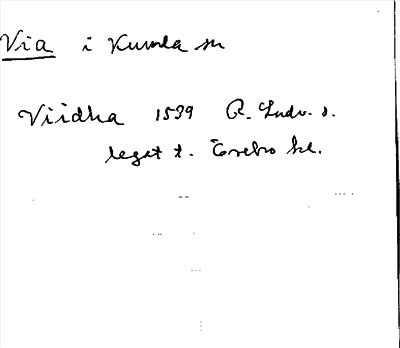 Via i Kumla sn
Viidha 1539 R. Ludv. s.
leget t. Örebro kl.